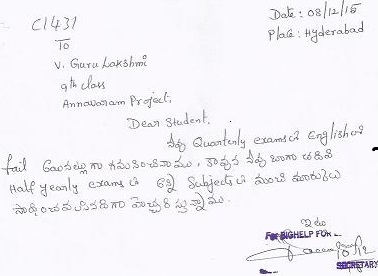 C1431
Date: 08/12/15
Place: Hyderabad
To
V. Guru Lakshmi
9th class
Annavaram Project.
Dear Student.
నీవు Quarterly examsలో Englishలో
fail కాగా
Half yearly examsలో అన్ని Subjectsలో మంచి మార్కులు
సాధించవలసినదిగా హెచ్చరిస్తున్నాము.
ఇట్లు
For BIGHELP FOR
SECRETARY